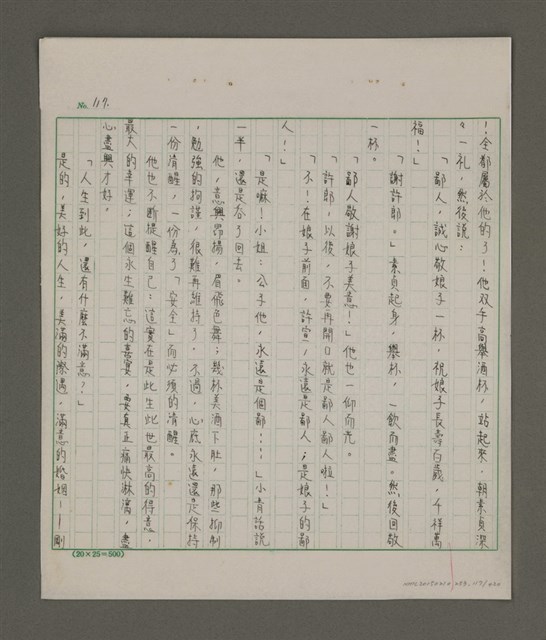 No. 117.
！全都屬於他的了！他双手高舉酒杯，站起來，朝素貞深
々一礼，然後說：
「鄙人，誠心敬娘子一杯，祝娘子長壽百歲，千祥萬
福！」
「謝許郎。」素貞起身，舉杯，一飲而盡。然後回敬
一杯。
「鄙人敬謝娘子美意！」他也一仰而光。
「許郎，以後，不要再開口就是鄙人鄙人啦！」
「不！在娘子前面，許宣，永遠是鄙人；是娘子的鄙
人！」
「是嘛！小姐：公子他，永遠是個鄙⋯⋯」小青話說
一半，還是吞了回去。
他，意興昂揚，眉飛色舞；幾杯美酒下肚，那些抑制
，勉強的拘謹，很難再維持了。不過，心底永遠還是保持
一份清醒，一份為了「安全」而必須的清醒。
他也不斷提醒自己：這實在是此生此世最高的得意，
最大的幸運；這個永生難忘的喜宴，要真正痛快淋漓，盡
心盡興才好。
「人生到此，還有什麼不滿意？」
是的，美好的人生，美滿的際遇，滿意的婚姻——剛
(20×25=500)